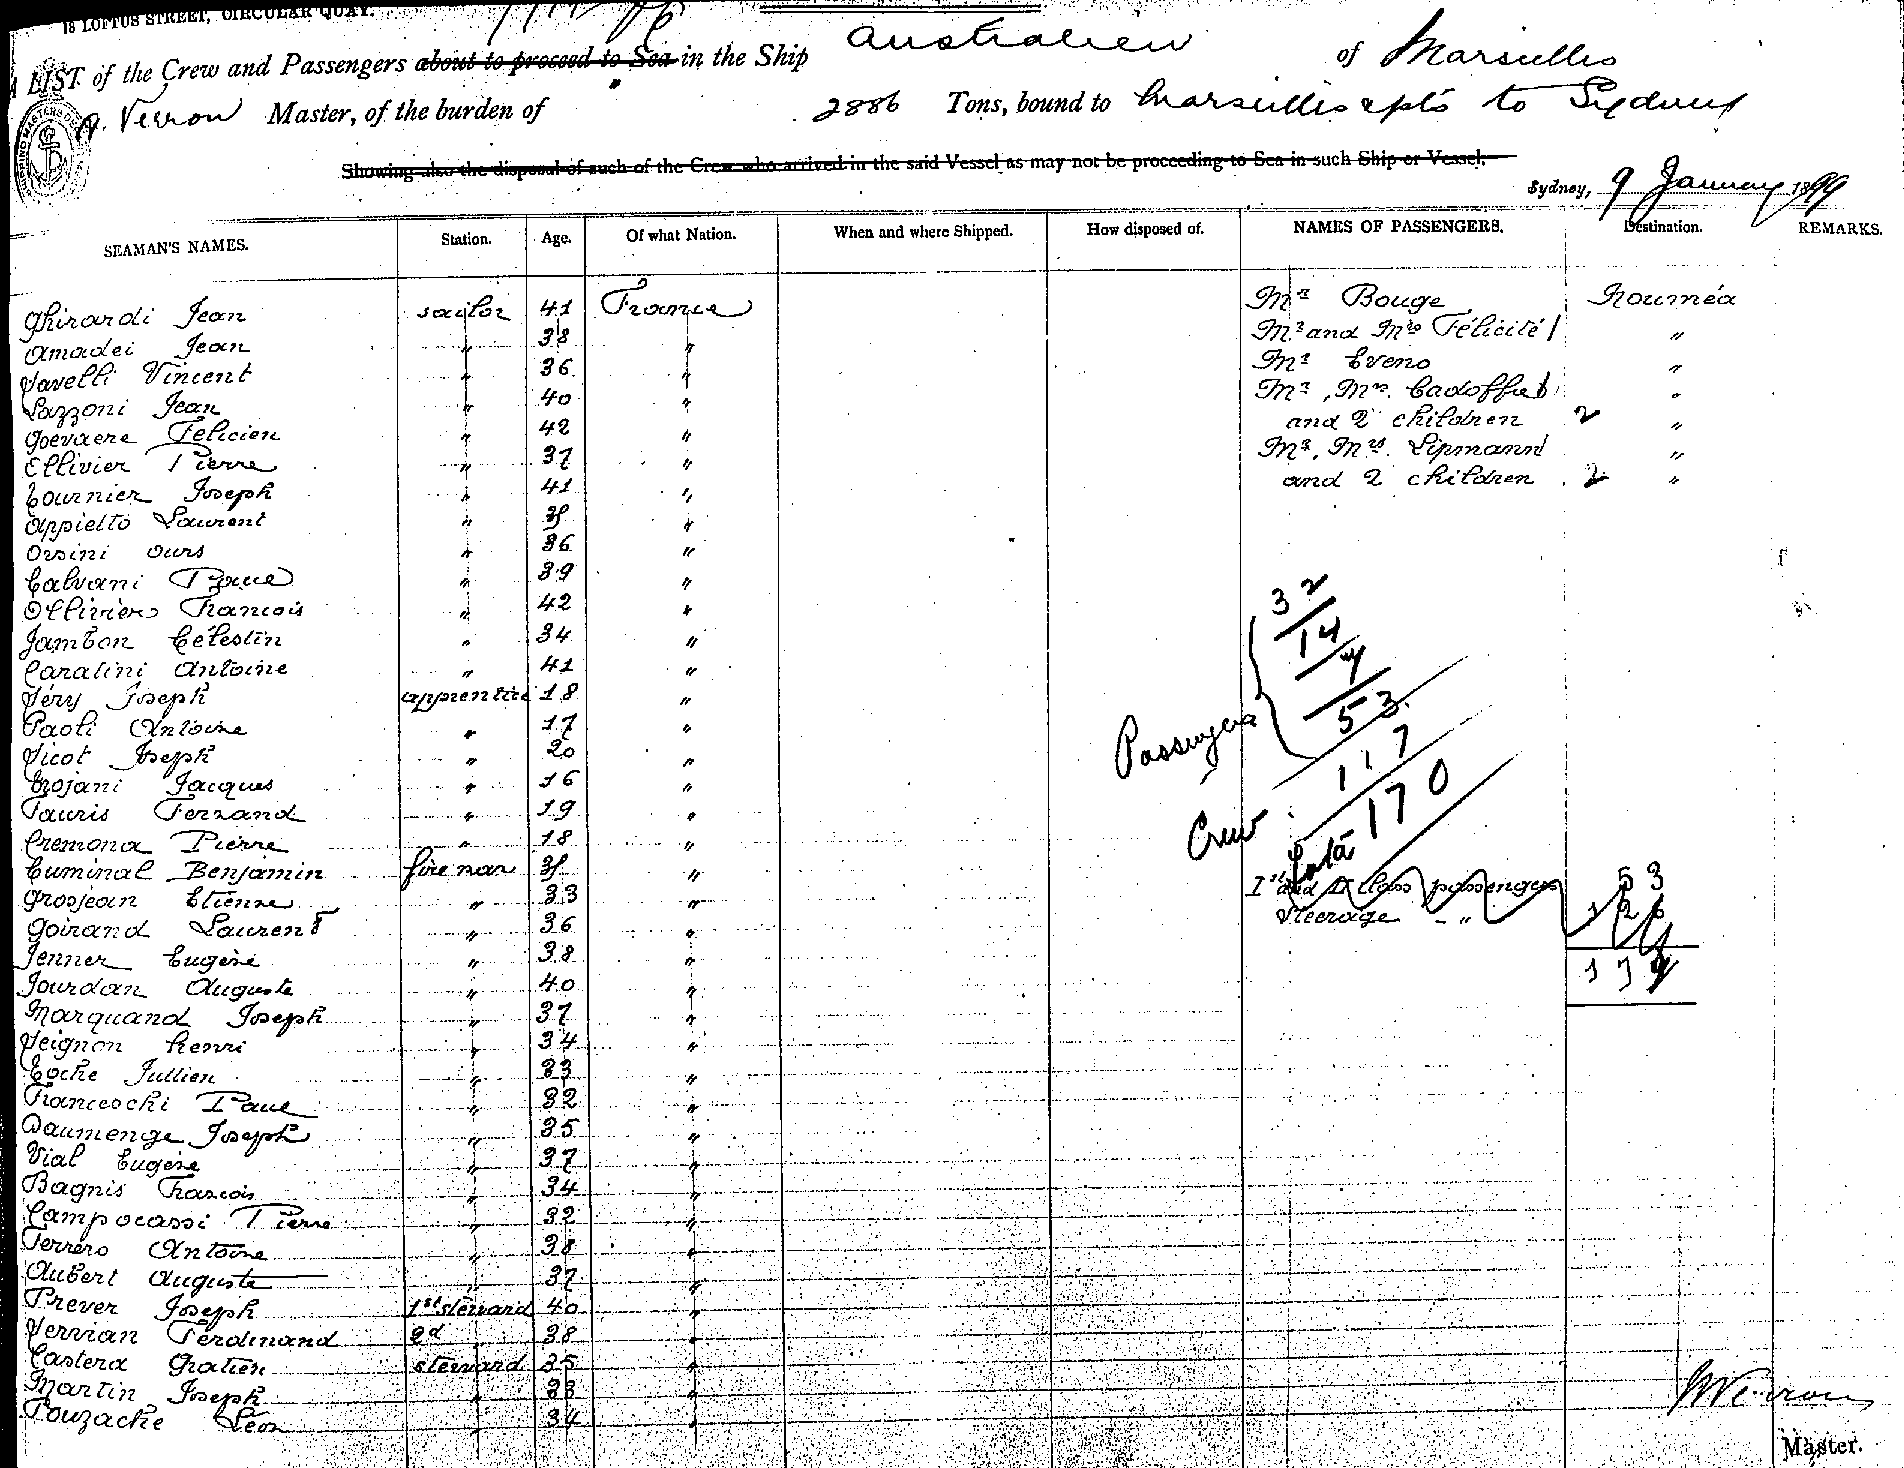 18 LOFTUS STREET, CIRCULAR QUAY.
A LIST of the Crew and Passengers about to proceed to Sea in the Ship Australien of Marseilles
A. Verron Master, of the burden of 2886 Tons, bound to Marseilles & pts to Sydney
Showing also the disposal of such of the Crew who arrived in the said Vessel as may not be proceeding to Sea in such Ship or Vessel.
Sydney, 9 January 1899
SEAMAN'S NAMES. Station. Age. Of what Nation. When and where Shipped. How disposed of. NAMES OF PASSENGERS. Destination. REMARKS.
Ghirardi Jean sailor 41 France Mr Bouge Nouméa
Amadei Jean " 38 " Mr and Mrs Félicité "
Vavelli Vincent " 36 " Mr Eveno "
Lazzoni Jean " 40 " Mr, Mrs. Cadoffre "
Goevaere Felicien " 42 " and 2 children 2 "
Ellivier Pierre " 37 " Mr, Mrs. Lipmann "
Tournier Joseph " 41 " and 2 children 2 "
Appietto Laurent " "
Orsini Ours " 36 "
Calvani Paul " 39 "
Ollivier Francois " 42 "
Jambon Célestin " 34 "
Caralini Antoine " 41 "
Véry Joseph apprentice 18 "
Paoli Antoine " 17 "
Vicot Joseph " 20 "
Trojani Jacques " 16 "
Tauris Fernand " 19 "
Cremona Pierre " 18 "
Cuminal Benjamin fireman "
Grosjean Etienne " 33 "
Goirand Laurent " 36 "
Jenner Eugène " 38 "
Jourdan Auguste " 40 "
Marquand Joseph " 37 "
Veignon Henri " 34 "
Coche Jullien " 33 "
Franceschi Paul " 32 "
Daumenge Joseph " 35 "
Vial Eugène " 37 "
Bagnis Francois " 34 "
Campocassi Pierre " 32 "
Ferrero Antoine " 38 "
Aubert Auguste " 37 "
Prever Joseph 1st steward 40 "
Verrian Ferdinand 2d 38 "
Castera Gratien steward 35 "
Martin Joseph " 33 "
Pouzache Léon " 34 "
32
14
7
Passengers 53
Crew 117
Total 170
1st and 2d Class passengers 53
Steerage "
Verron
Master.